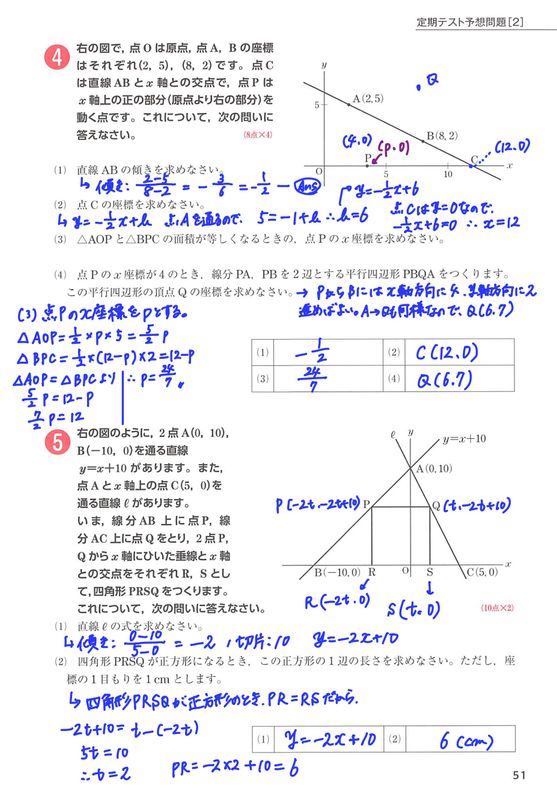 定期テスト予想問題[2]
4
右の図で，点Oは原点，点A，Bの座標
はそれぞれ(2, 5)，(8, 2)です。点C
は直線ABとx軸との交点で，点Pは
x軸上の正の部分(原点より右の部分)を
動く点です。これについて，次の問いに
答えなさい。
(8点×4)
y
Q
5
A(2,5)
B(8,2)
(4,0)
(P,0)
(12,0)
P
C
O
5
10
x
(1) 直線ABの傾きを求めなさい。
↳ 傾き: (2-5)/(8-2) = -3/6 = -1/2 — Ans
(2) 点Cの座標を求めなさい。
y=-1/2x+6
点Cはy=0なので、
↳ y=-1/2x+b 点Aを通るので、5=-1+b ∴b=6
-1/2x+6=0 ∴x=12
(3) △AOPと△BPCの面積が等しくなるときの，点Pのx座標を求めなさい。
(4) 点Pのx座標が4のとき，線分PA，PBを2辺とする平行四辺形PBQAをつくります。
この平行四辺形の頂点Qの座標を求めなさい。
→ PからBにはx軸方向に4、y軸方向に2
進めばよい。A→Qも同様なので、Q(6,7)
(3) 点Pのx座標をpとする。
△AOP=1/2×p×5=5/2p
△BPC=1/2×(12-p)×2=12-p
△AOP=△BPCより
5/2p=12-p
7/2p=12
∴p=24/7
(1) -1/2 (2) C(12,0)
(3) 24/7 (4) Q(6,7)
5
右の図のように，2点A(0, 10)，
B(-10, 0)を通る直線
y=x+10があります。また，
点Aとx軸上の点C(5, 0)を
通る直線ℓがあります。
いま，線分AB上に点P，線
分AC上に点Qをとり，2点P，
Qからx軸にひいた垂線とx軸
との交点をそれぞれR，Sとし
て，四角形PRSQをつくります。
これについて，次の問いに答えなさい。
(10点×2)
ℓ
y
y=x+10
A(0,10)
P(-2t,-2t+10)
P
Q
(t,-2t+10)
B(-10,0)
R
O
S
C(5,0)
x
R(-2t,0)
S(t,0)
(1) 直線ℓの式を求めなさい。
↳ 傾き: (0-10)/(5-0) = -2, 切片:10 y=-2x+10
(2) 四角形PRSQが正方形になるとき，この正方形の1辺の長さを求めなさい。ただし，座
標の1目もりを1cmとします。
↳ 四角形PRSQが正方形のとき、PR=RSだから、
-2t+10=t-(-2t)
5t=10
∴t=2
PR=-2×2+10=6
(1) y=-2x+10 (2) 6(cm)
51